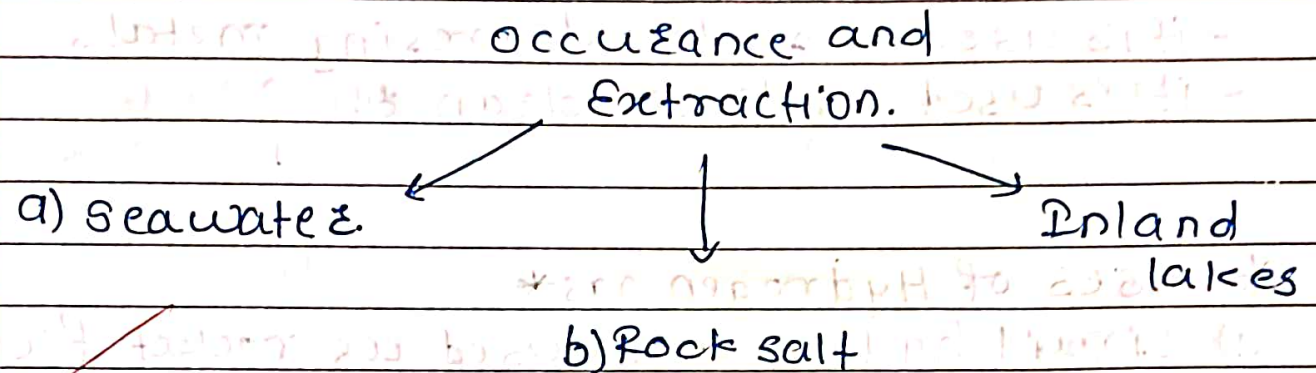 occurance and
Extraction.
a) seawater.
Inland
lakes
b) Rock salt